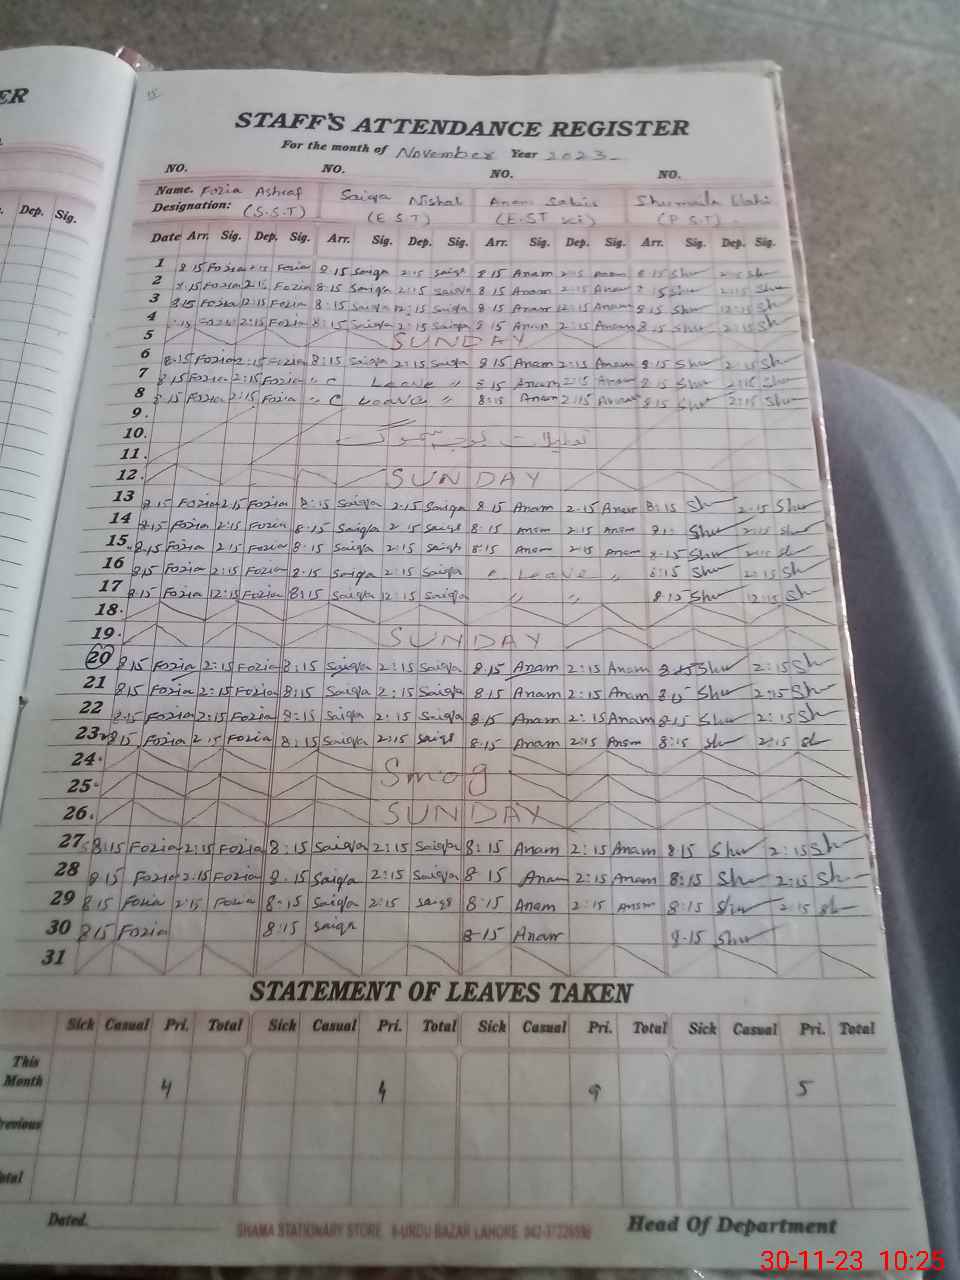 ER
Dep. Sig.
STAFF'S ATTENDANCE REGISTER
For the month of November Year 2023
NO. NO. NO. NO.
Name. Fozia Ashraf Saiqa Anam Shumaila Elahi
Designation: (S.S.T) (E S T) (E.ST (P S T)
Date Arr. Sig. Dep. Sig. Arr. Sig. Dep. Sig. Arr. Sig. Dep. Sig. Arr. Sig. Dep. Sig.
1 8 15 Fozia Fozia 8 15 Saiqa 2:15 Saiqa 8 15 Anam 2:15 Anam 8 15 Shu 2:15 Sh
2 8 15 Fozia 2:15 Fozia 8:15 Saiqa 2:15 Saiqa 8 15 Anam 2:15 Anam 8 15 Shu 2:15 Sh
3 8 15 Fozia 12:15 Fozia 8:15 Saiqa 12:15 Saiqa 8 15 Anam 12:15 Anam 8 15 Shu 12:15 Sh
4 Fozia 2:15 Fozia 8:15 Saiqa 2:15 Saiqa 8 15 Anam 2:15 Anam 8 15 Shu 2:15 Sh
5 SUNDAY
6 8:15 Fozia 2:15 Fozia 8:15 Saiqa 2:15 Saiqa 8 15 Anam 2:15 Anam 8 15 Shu 2:15 Sh
7 8 15 Fozia 2:15 Fozia " C Leave " 8:15 Anam 2:15 Anam 8 15 Shu 2:15 Sh
8 8 15 Fozia 2:15 Fozia " C Leave " 8:15 Anam 2:15 Anam 8 15 Shu 2:15 Sh
9.
10. تعطیلات بوجہ سموگ
11.
12. SUNDAY
13 8 15 Fozia 2 15 Fozia 8:15 Saiqa 2:15 Saiqa 8 15 Anam 2:15 Anam 8:15 Sh 2:15 Shu
14 8 15 Fozia 2:15 Fozia 8:15 Saiqa 2 15 Saiqa 8:15 Anam 2:15 Anam Shu 2:15 Shu
15. 8:15 Fozia 2:15 Fozia 8:15 Saiqa 2:15 Saiqa 8:15 Anam 2:15 Anam 8:15 Shu 2:15 Sh
16 8 15 Fozia 2:15 Fozia 8:15 Saiqa 2:15 Saiqa Leave " 8:15 Shu 2:15 Sh
17 8:15 Fozia 12:15 Fozia 8:15 Saiqa 12:15 Saiqa " " 8:15 Shu 12:15 Sh
18.
19. SUNDAY
20 8 15 Fozia 2:15 Fozia 8:15 Saiqa 2:15 Saiqa 8:15 Anam 2:15 Anam 8:15 Shu 2:15 Sh
21 8 15 Fozia 2:15 Fozia 8:15 Saiqa 2:15 Saiqa 8:15 Anam 2:15 Anam 8:15 Shu 2:15 Sh
22 8:15 Fozia 2:15 Fozia 8:15 Saiqa 2:15 Saiqa 8:15 Anam 2:15 Anam 8:15 Shu 2:15 Sh
23 8:15 Fozia 2:15 Fozia 8:15 Saiqa 2:15 Saiqa 8:15 Anam 2:15 Anam 8:15 Sh 2:15 Sh
24. Smog
25.
26. SUNDAY
27 8:15 Fozia 2:15 Fozia 8:15 Saiqa 2:15 Saiqa 8:15 Anam 2:15 Anam 8:15 Shu 2:15 Sh
28 8:15 Fozia 2:15 Fozia 8:15 Saiqa 2:15 Saiqa 8 15 Anam 2:15 Anam 8:15 Shu 2:15 Sh
29 8:15 Fozia 2:15 Fozia 8:15 Saiqa 2:15 Saiqa 8:15 Anam 2:15 Anam 8:15 Shu 2:15 Sh
30 8:15 Fozia 8:15 Saiqa 8:15 Anam 8:15 Shu
31
STATEMENT OF LEAVES TAKEN
Sick Casual Pri. Total Sick Casual Pri. Total Sick Casual Pri. Total Sick Casual Pri. Total
This Month 4 4 9 5
revious
otal
Dated. SHAMA STATIONARY STORE URDU BAZAR LAHORE Head Of Department
30-11-23 10:25